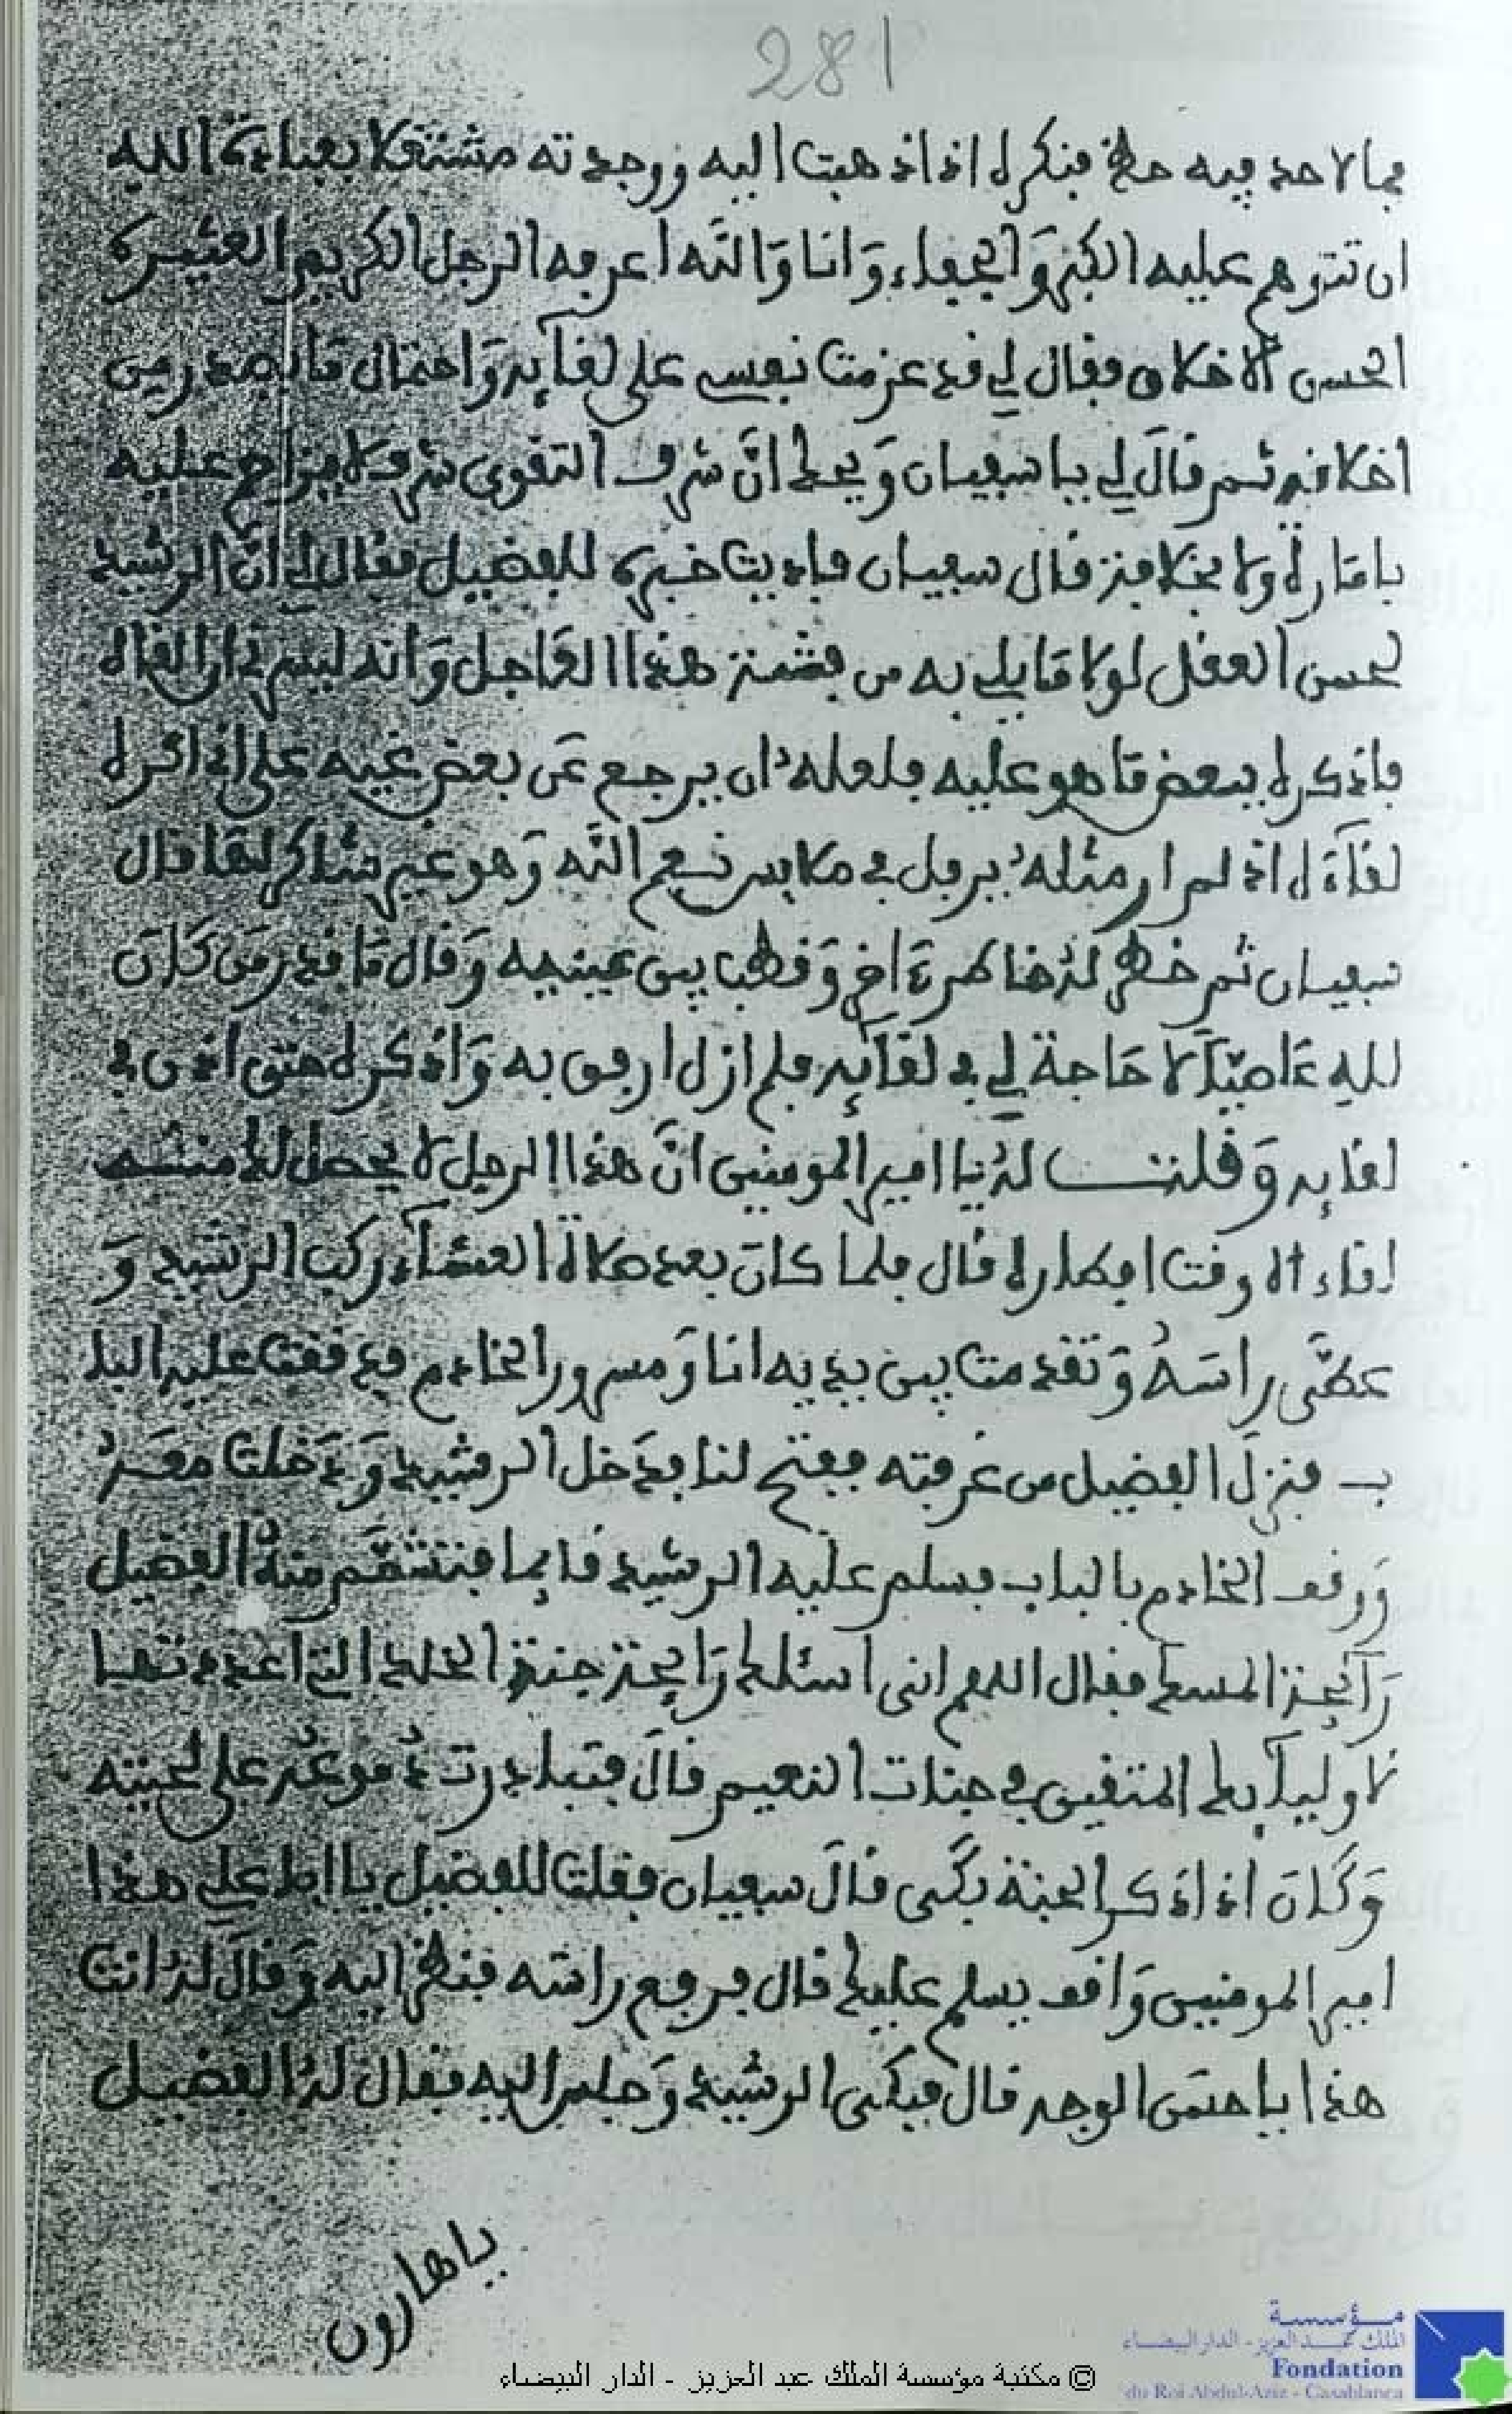 281
فيما لاحد فيه حظ فنكره اذا ذهبت اليه ووجدته مشتغلا بعبادة الله
ان تتوهم عليه الكبر وَالجفاء وَانا وَالله اعرفه الرجل الكريم العشيرة
الحسن الاخلاق فقال لي قد عزمت نفسي على لقآيه وَاحتمال مَا يصدر من
اخلاقه ثم قالَ لي يا سفيان وَيحك انَّ شرف التقوى شرف لا يزاحم عليه
بامَارة ولا بخلافة قال سفيان فاديت خبره للفضيل فقال لي انَّ الرشيد
لحسن العقل لولا مَا بلي به من فتنة هذا العَاجل وَانه ليسرني ان القاه
فاذكره ببعض مَا هو عليه فلعلهُ ان يرجع عَن بعض غيه على اني اكره
لقآءَه اذ لم ار مثلهُ يرفل في ملابس نعم الله وَهو غير شاكر لها قال
سفيان ثم خطر لهُ خاطرة اخر وَقطب بين عينيه وَقال مَا قدر مَن كَان
للهِ عَاصيًا لا حَاجة لي في لقآيه فلم ازل ارفق به وَاذكره حتى اذن في
لقايه وَقلت لهُ يا امير المومنين انَّ هذا الرجل لا يحصل لك منه
لقاء الا وقت افطاره قال فلما كانَ بعد صلاة العشآء ركب الرشيد وَ
غطَّى راسَهُ وَتقدمت بين يديه انا وَمسرور الخادم فدققت عليه البا
ب فنزلَ الفضيل من غرفته ففتح لنا فدَخل الرشيد وَدَخلت معَهُ
وَوقف الخادم بالباب فسلم عليه الرشيد قايما فتنشَّم منهُ الفضيل
رَآيحة المسك فقال اللهم انى اسئلك رَايحة جنة الخلد التي اعددتها
لاوليآيك المتقين في جنات النعيم قالَ فتبادرت دُموعُه على لحيته
وَكَانَ اذا ذكر الجنة بكَى قالَ سفيان فقلت للفضيل يا ابا علي هذا
امير المومنين وَاقف يسلم عليك قال فرفع راسَه فنظر اليه وَقالَ لهُ انت
هذا يا حسَن الوجه قالَ فبكَى الرشيد وَجلس اليه فقال لهُ الفضيل
يا هارون
مؤسسة
الملك عبد العزيز - الدار البيضاء
Fondation
du Roi Abdul-Aziz - Casablanca
© مكتبة مؤسسة الملك عبد العزيز - الدار البيضاء